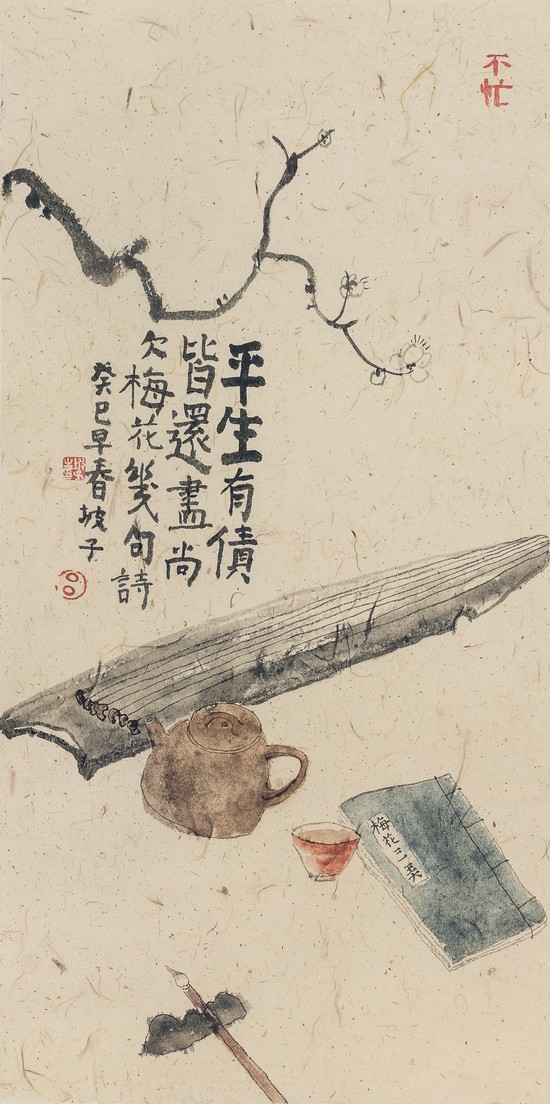 不忙
平生有債
皆還盡尚
欠梅花幾句詩
癸巳早春坡子
梅花三弄